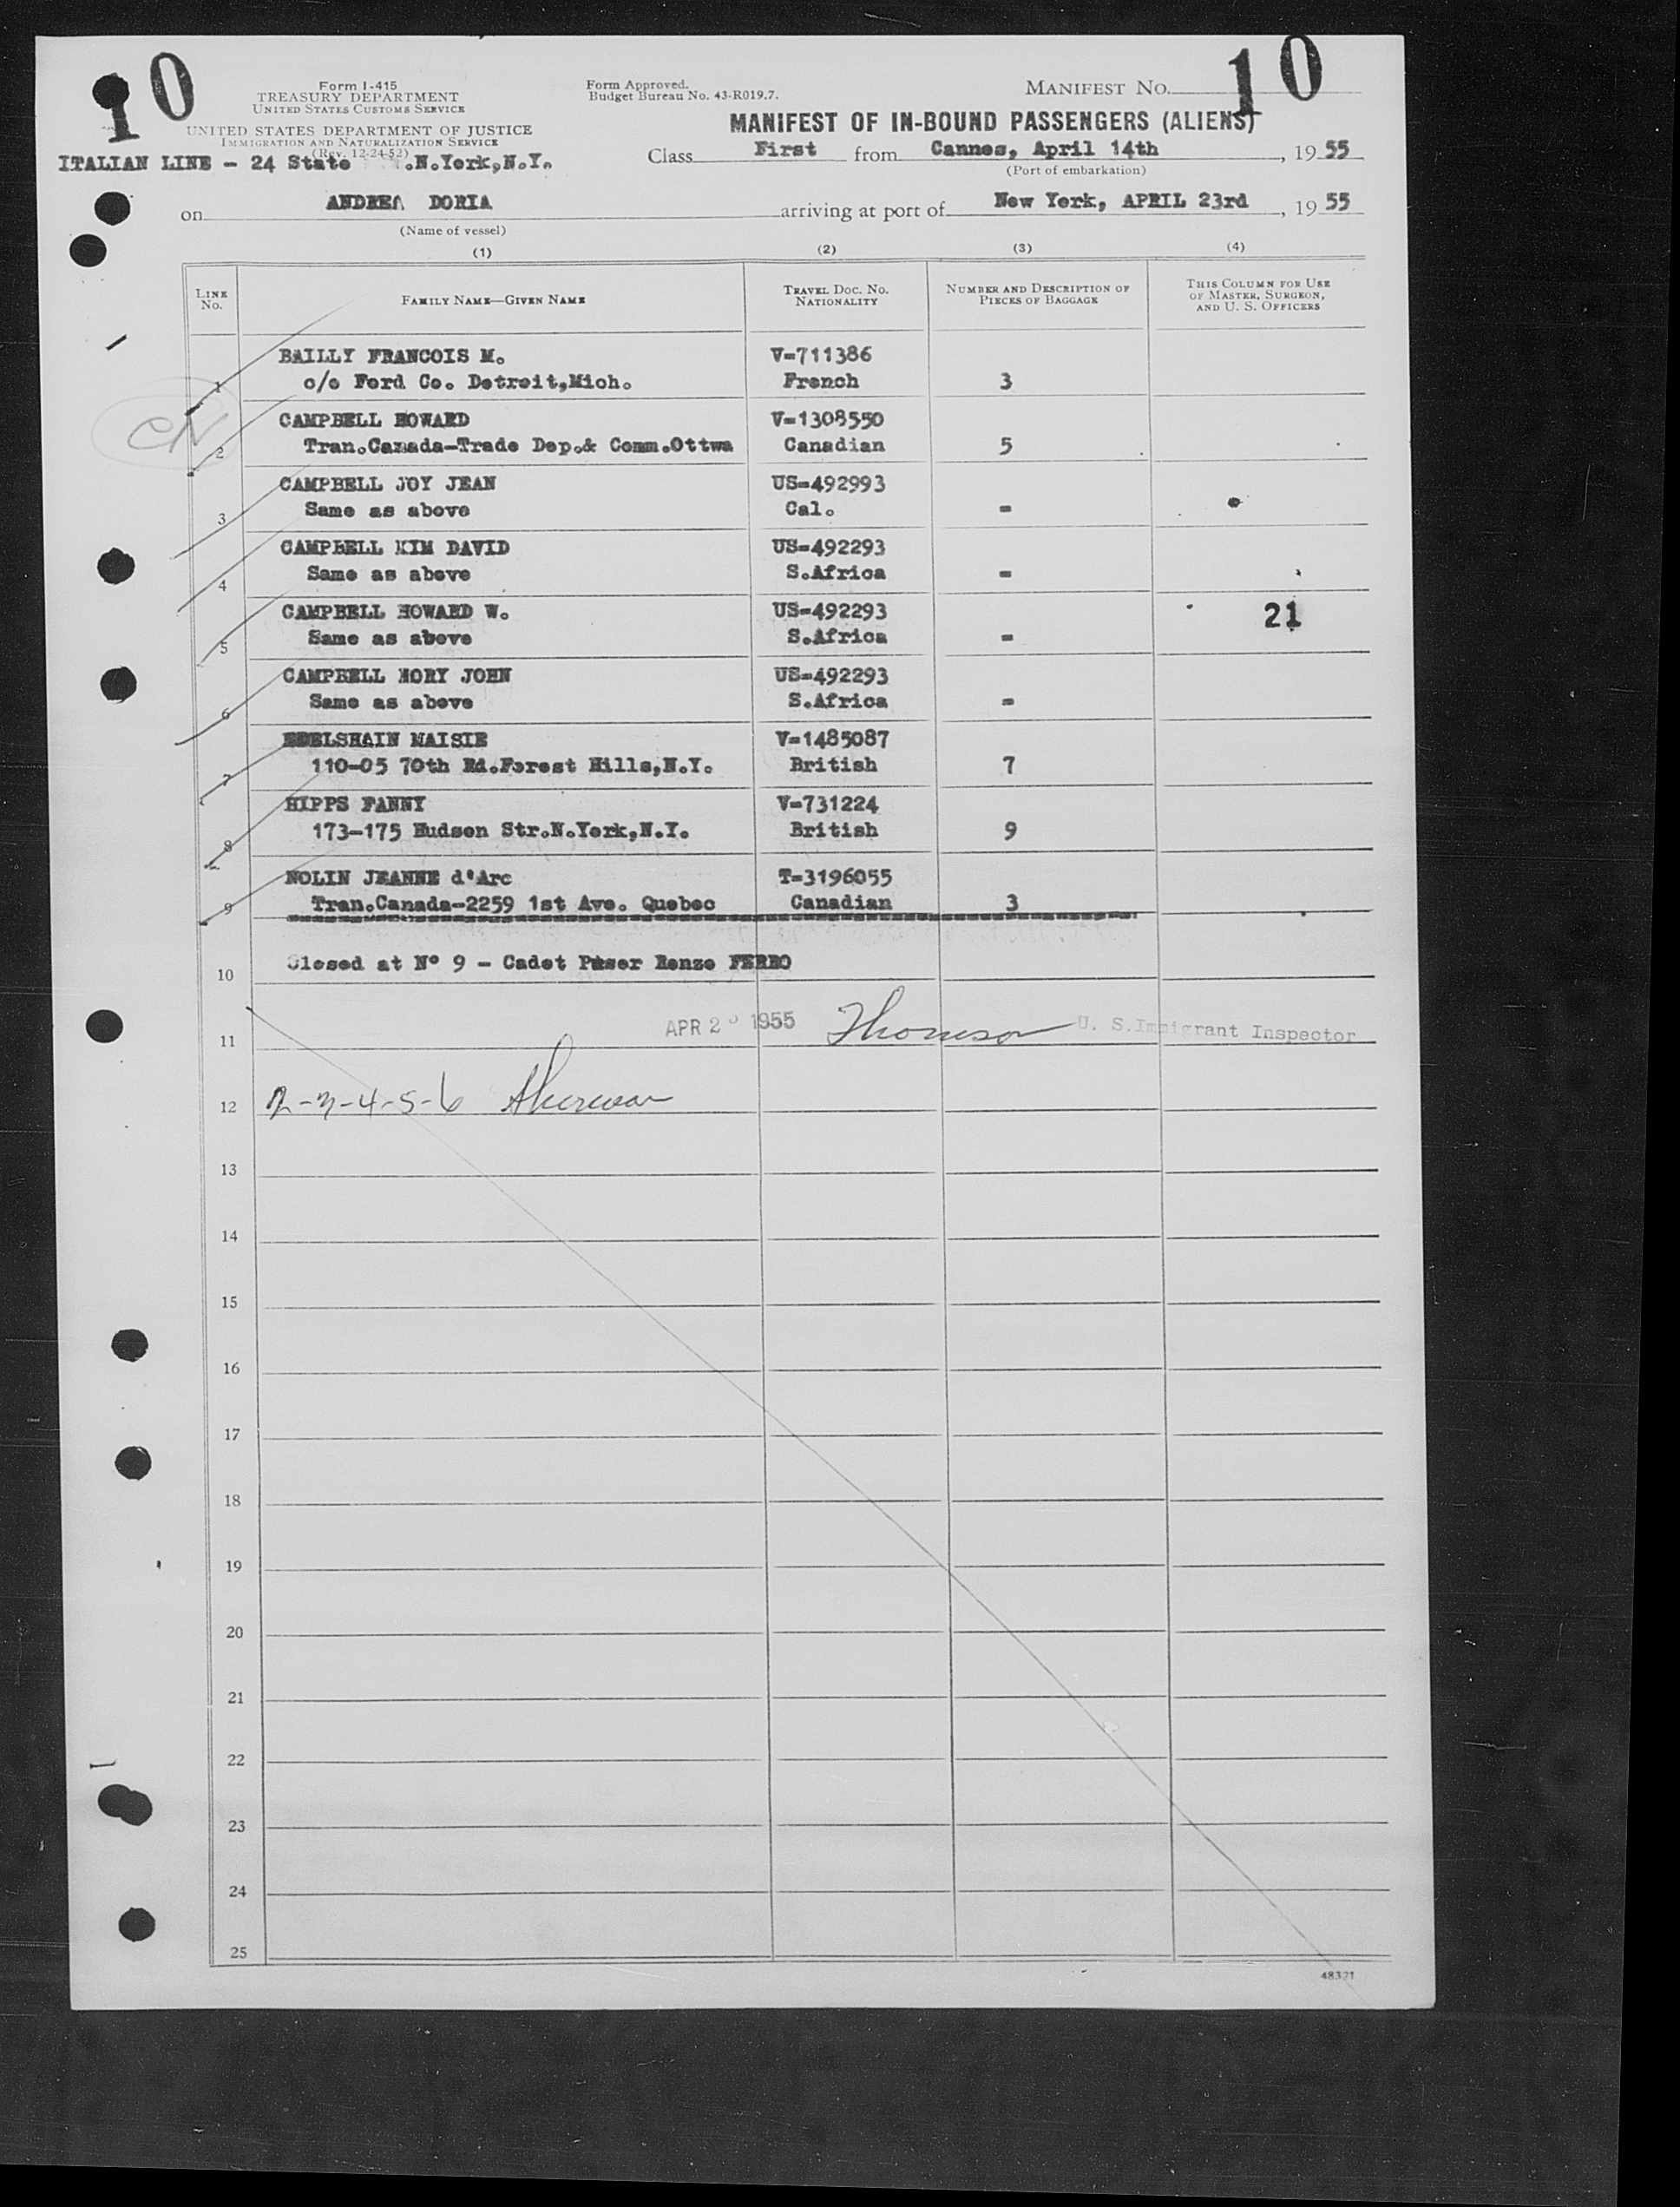 10
Form I-415
TREASURY DEPARTMENT
UNITED STATES CUSTOMS SERVICE
UNITED STATES DEPARTMENT OF JUSTICE
IMMIGRATION AND NATURALIZATION SERVICE
(Rev. 12-24-52)
ITALIAN LINE - 24 State .N.York,N.Y.
Form Approved.
Budget Bureau No. 43-R019.7.
MANIFEST No. 10
MANIFEST OF IN-BOUND PASSENGERS (ALIENS)
Class First from Cannes, April 14th, 1955
(Port of embarkation)
on ANDREA DORIA arriving at port of New York, APRIL 23rd, 1955
(Name of vessel)
(1) (2) (3) (4)
LINE No. FAMILY NAME—GIVEN NAME TRAVEL DOC. NO. NATIONALITY NUMBER AND DESCRIPTION OF PIECES OF BAGGAGE THIS COLUMN FOR USE OF MASTER, SURGEON, AND U. S. OFFICERS
BAILLY FRANCOIS M. V-711386
1 c/o Ford Co. Detroit,Mich. French 3
CAMPBELL HOWARD V-1308550
2 Tran.Canada-Trade Dep.& Comm.Ottwa Canadian 5
CAMPBELL JOY JEAN US-492993
3 Same as above Cal. -
CAMPBELL KIM DAVID US-492293
4 Same as above S.Africa -
CAMPBELL HOWARD W. US-492293 21
5 Same as above S.Africa -
CAMPBELL RORY JOHN US-492293
6 Same as above S.Africa -
EDELSHAIN MAISIE V-1485087
7 110-05 70th Rd.Forest Hills,N.Y. British 7
HIPPS FANNY V-731224
8 173-175 Hudson Str.N.York,N.Y. British 9
NOLIN JEANNE d'Arc T-3196055
9 Tran.Canada-2259 1st Ave. Quebec Canadian 3
10 Closed at N° 9 - Cadet Purser Renzo FERRO
11 APR 2 1955 Thomson U. S. Immigrant Inspector
12 2-3-4-5-6
13
14
15
16
17
18
19
20
21
22
23
24
25
48321